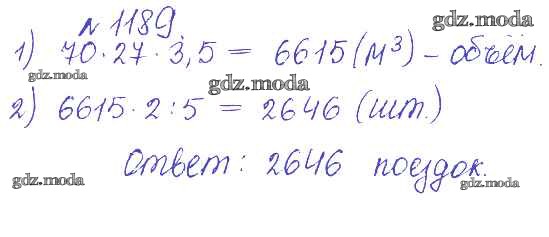 gdz.moda
№ 1189.
1) 70·27·3,5 = 6615(м³) – объём.
gdz.moda
gdz.moda
2) 6615·2:5 = 2646 (шт.)
Ответ: 2646 поездок.
gdz.moda
gdz.moda